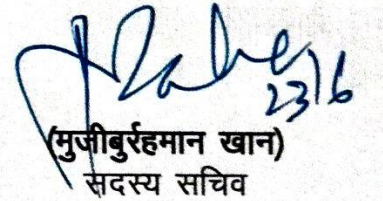 23/6
(मुजीबुर्रहमान खान)
सदस्य सचिव